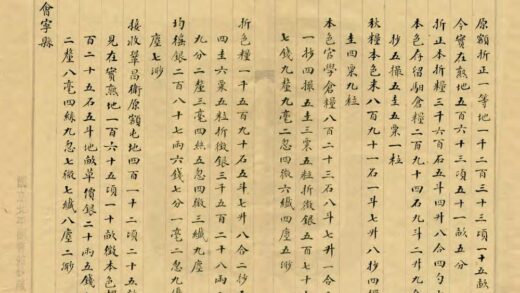 原額折正一等地一千二百三十三項一十五畝
今實在熟地五百六十三項五十一畝五分
折正本折糧三千六百石五斗四升八合四勺
本色存留馹倉糧二百九十四石九斗二升九
抄五撮五圭五粟一粒
秋糧本色米八百九十一石一斗七升八抄四撮
圭四粟九粒
本色官學倉糧八百二十三石八斗七升一合
一抄四撮五圭三粟五粒折徵銀五百七十
七錢九釐九毫二忽四微六纖四塵五渺
折色糧一千五百九十石五斗七升八合二抄
四圭六粟五粒折徵銀三千五百二十八兩
九分二釐三毫四絲五忽四微三纖九塵
均徭銀二百八十七兩六錢七分一毫二忽九
塵七渺
接收鞏昌衛原額屯地四百一十二項二十五
見在實熟地一百六十五項一十畝徵本色
百二十五石五斗地畝草價銀二十兩五錢
二釐八毫四絲九忽七微七纖八塵二渺
會寧縣